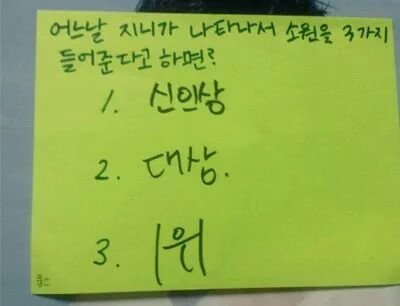 어느날 지니가 나타나서 소원을 3가지
들어준다고 하면?
1. 신인상
2. 대상.
3. 1위